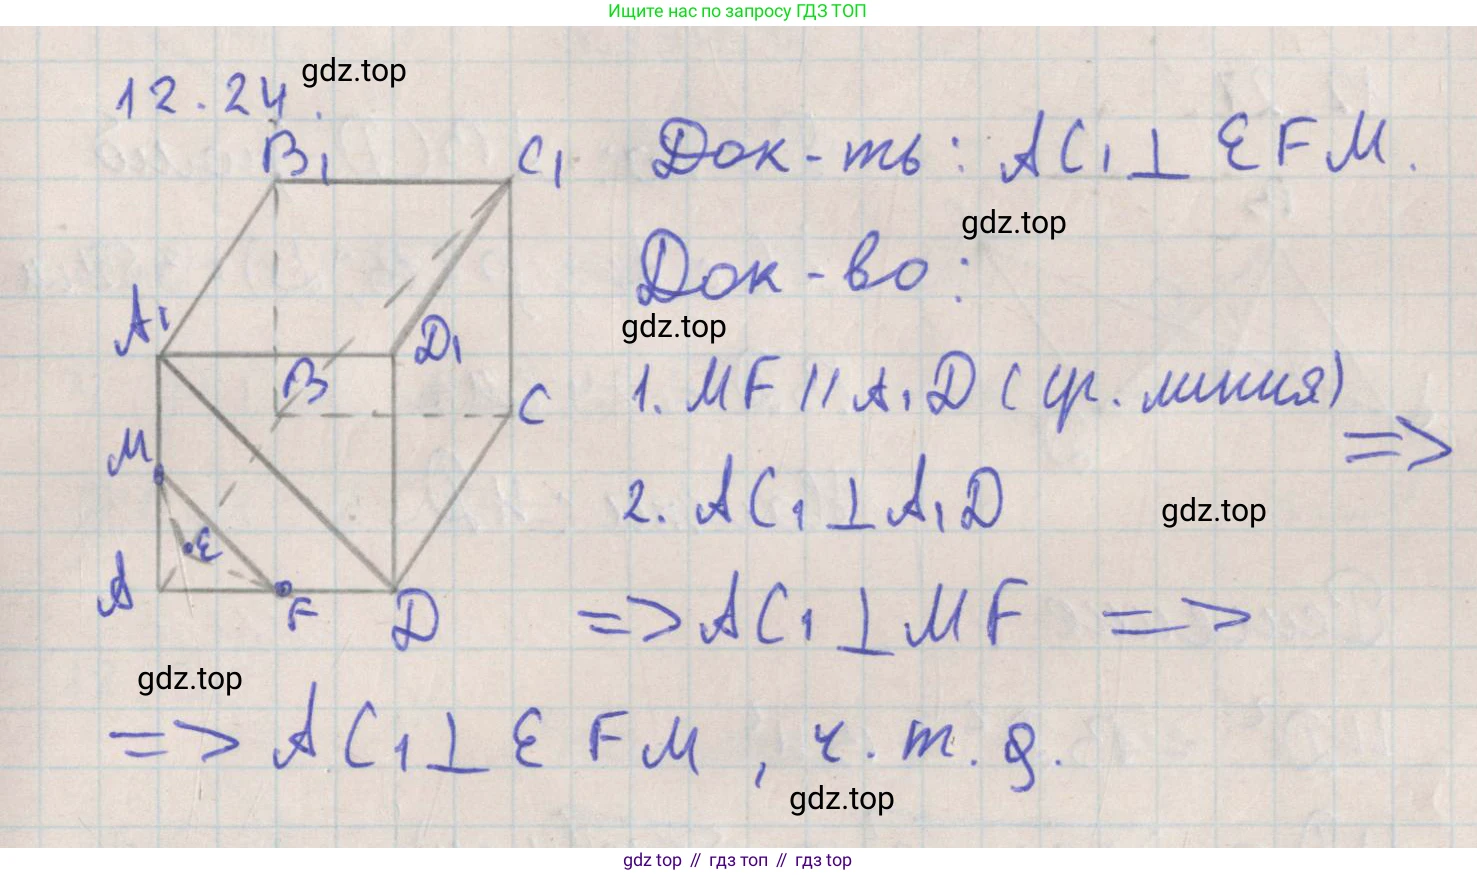 Ищите нас по запросу ГДЗ ТОП
12.24.
gdz.top
B₁
C₁
Док-ть: AC₁ ⊥ EFM.
gdz.top
Док-во:
A₁
D₁
gdz.top
B
C
1. MF || A₁D (ср. линия)
=>
M
2. AC₁ ⊥ A₁D
gdz.top
E
A
F
D
=> AC₁ ⊥ MF =>
gdz.top
=> AC₁ ⊥ EFM, ч.т.д.
gdz.top
gdz top // гдз топ // гдз top